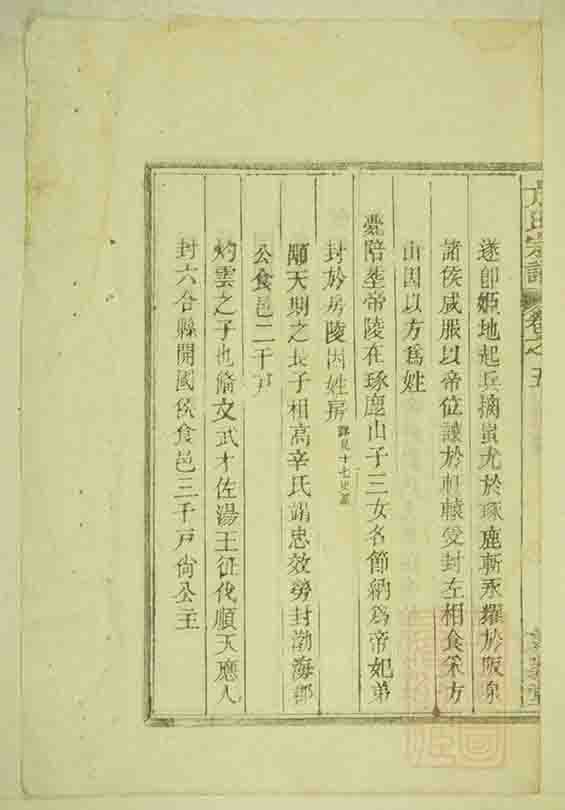 方氏宗譜 卷之五
遂卽姬地起兵擒蚩尤於琢鹿斬永耀於阪泉
諸侯咸服以帝位讓於軒轅受封左相食采方
山因以方爲姓
薨陪塟帝陵在琢鹿山子三女名節納爲帝妃弟
封於房陵因姓房 詳見十七史纂
顒天期之長子相高辛氏竭忠效勞封渤海郡
公食邑二千戸
灼雲之子也脩文武才佐湯王征伐順天應人
封六合縣開國侯食邑三千戸尙公主